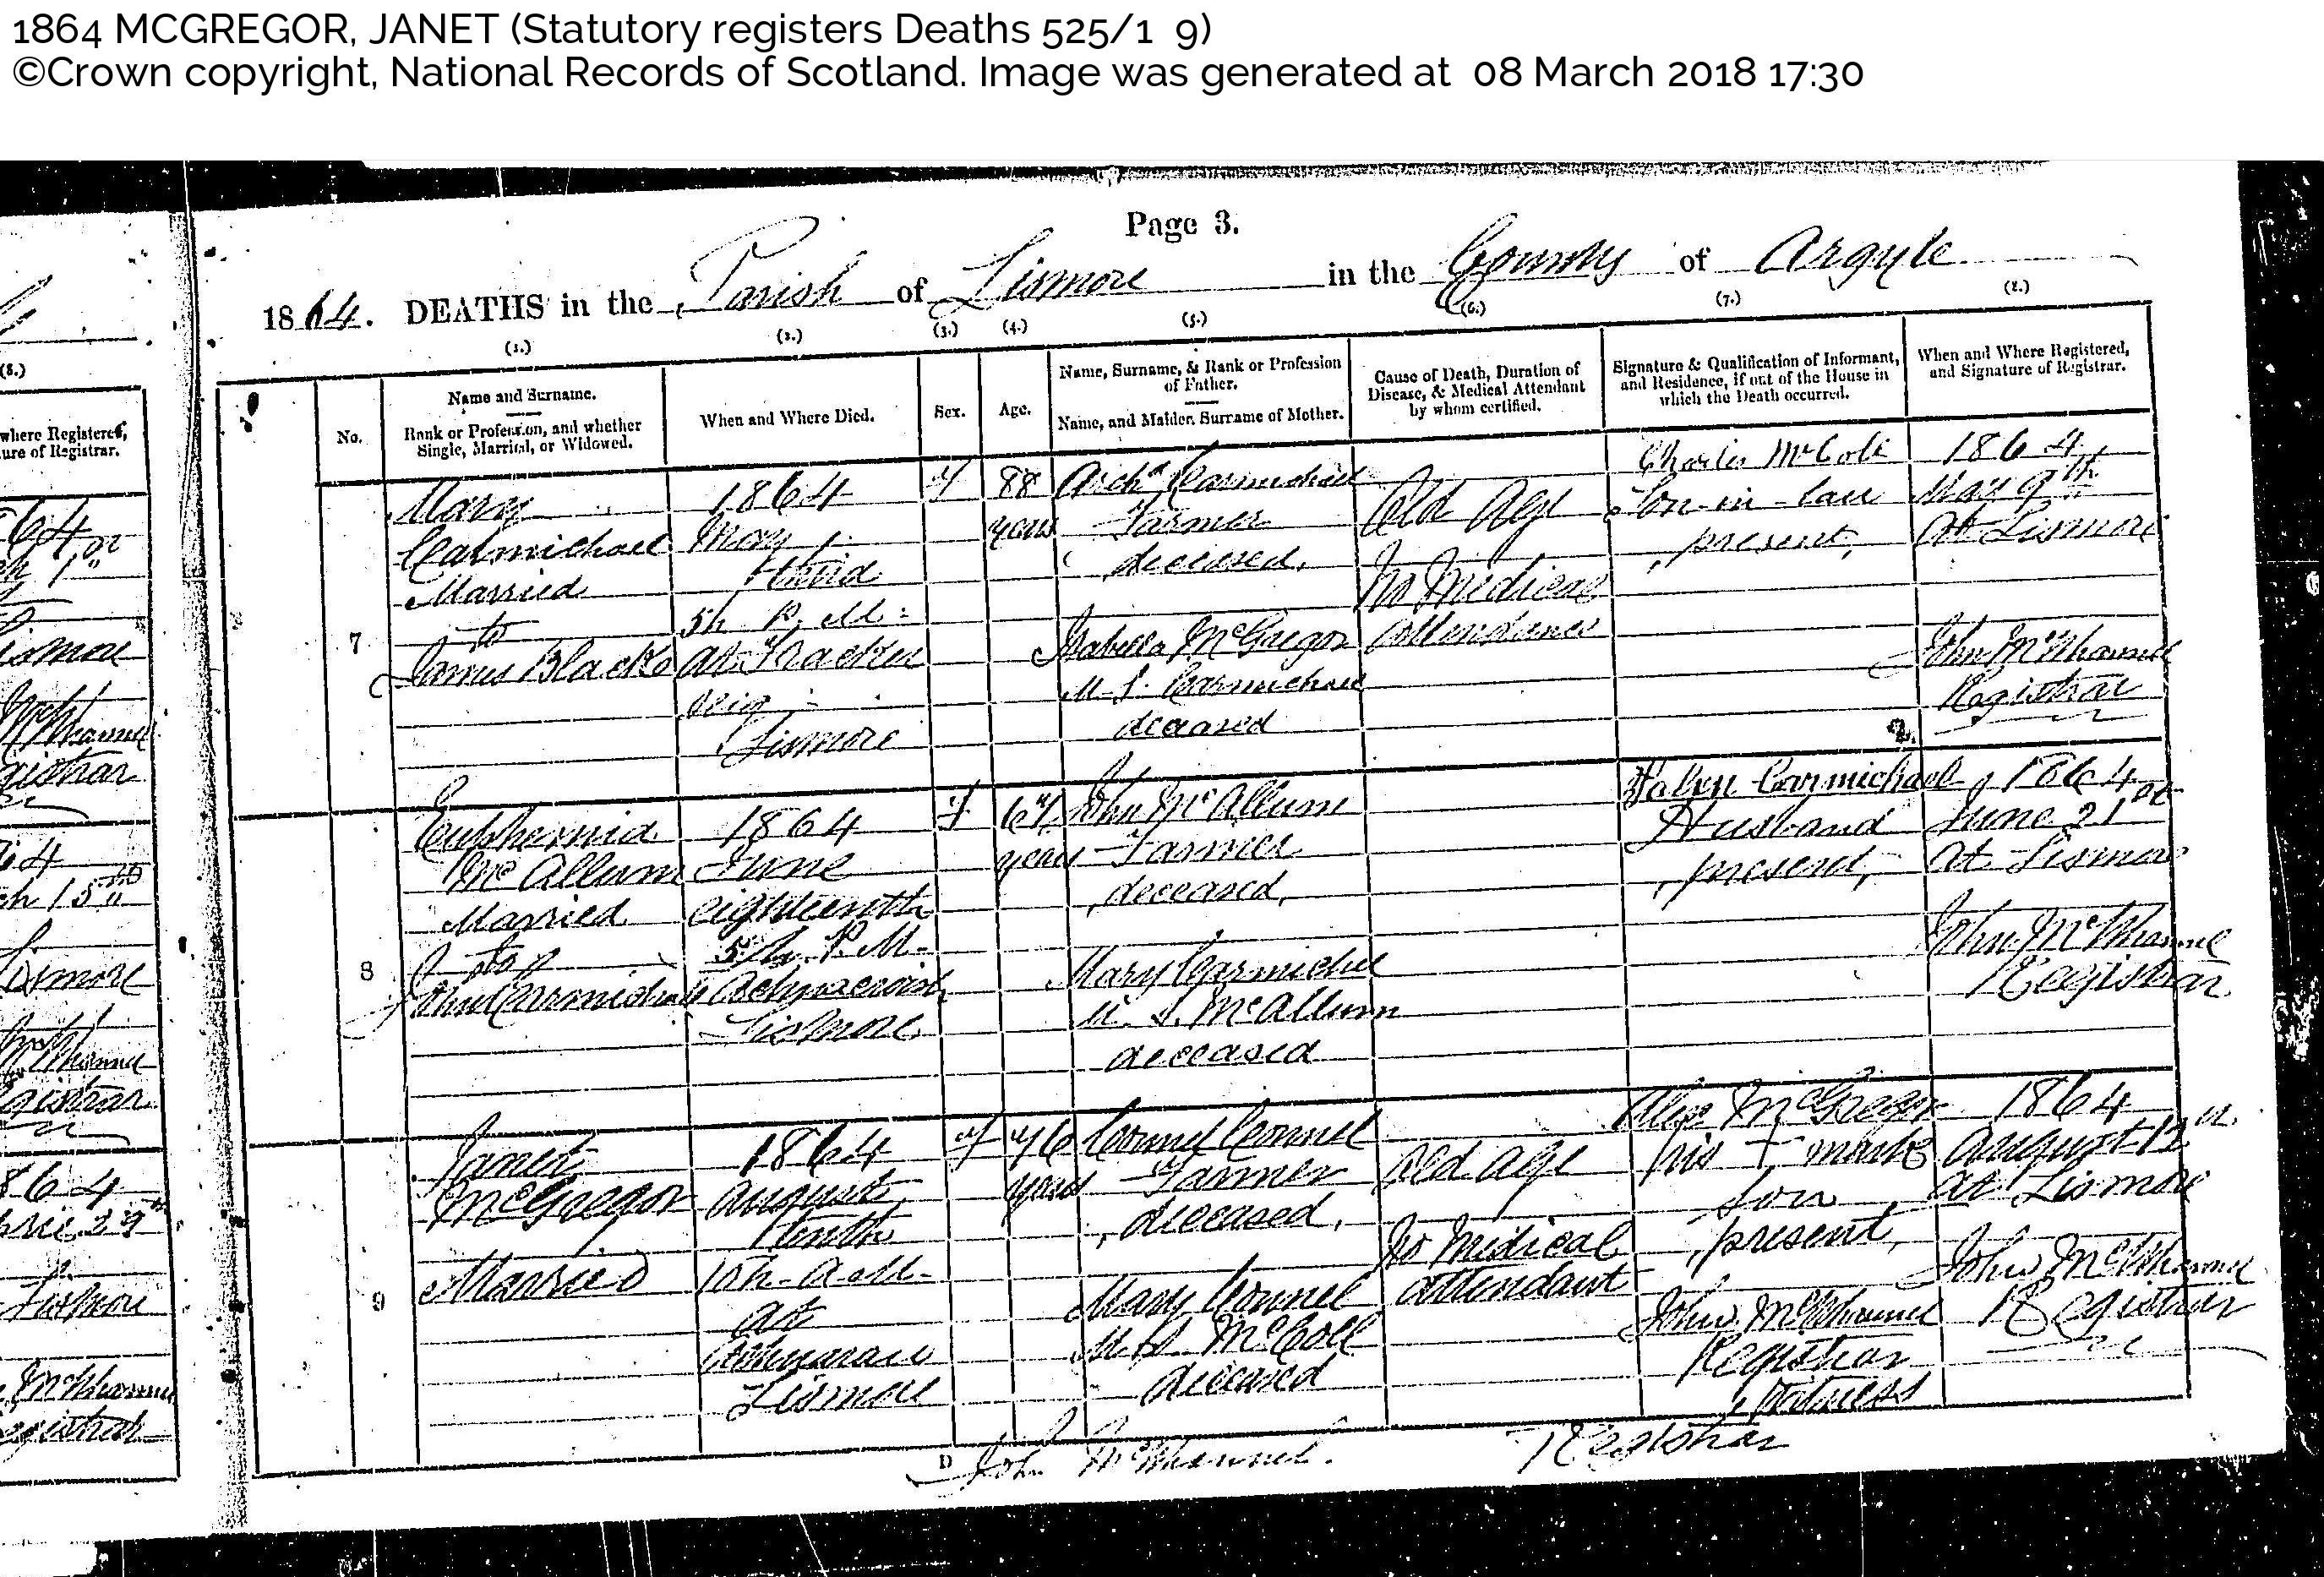 1864 MCGREGOR, JANET (Statutory registers Deaths 525/1 9)
©Crown copyright, National Records of Scotland. Image was generated at 08 March 2018 17:30
Page 3.
1864. DEATHS in the Parish of Lismore in the County of Argyle
(1.) (2.) (3.) (4.) (5.) (6.) (7.) (8.)
No.
Name and Surname.
Rank or Profession, and whether
Single, Married, or Widowed.
When and Where Died.
Sex.
Age.
Name, Surname, & Rank or Profession
of Father.
Name, and Maiden Surname of Mother.
Cause of Death, Duration of
Disease, & Medical Attendant
by whom certified.
Signature & Qualification of Informant,
and Residence, if out of the House in
which the Death occurred.
When and Where Registered,
and Signature of Registrar.
7
Mary
Carmichael
Married
to
James Black
1864
May
third
5h P. M.
at
Lismore
f
88
years
Archd Carmichael
Farmer
deceased.
Isabella McGregor
M. S. Carmichael
deceased
Old Age
No Medical
attendance
Charles McColl
Son-in-law
present,
1864
May 9th
At Lismore
John McWhannel
Registrar
8
Euphemia
McAllum
Married
to
John Carmichael
1864
June
eighteenth
5h P. M.
Lismore
f
years
John McAllum
Farmer
deceased,
Mary Carmichel
M. S. McAllum
deceased
Carmichael
Husband
present,
1864
June 21st
At Lismore
John McWhannel
Registrar
9
Janet
McGregor
Married
1864
August
tenth
10h A. M.
at
Lismore
f
76
years
Connel
Farmer
deceased,
Mary Connel
M. S. McColl
deceased
Old Age
No Medical
attendant
Alex McGregor
his + mark
son
present,
John McWhannel
Registrar
Witness
1864
August 12th
At Lismore
John McWhannel
Registrar
D
John McWhannel. Registrar